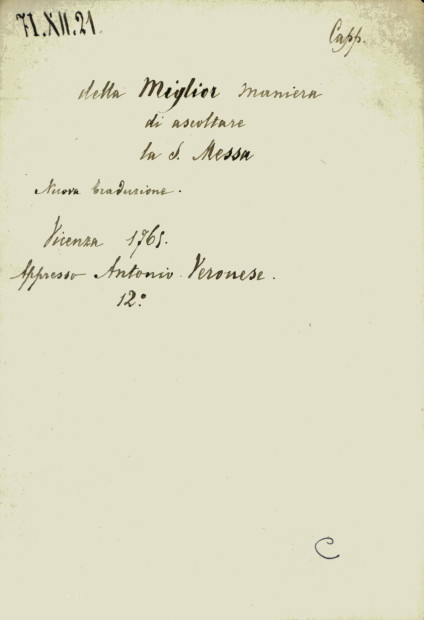 71.XII.21.
Capp.
della Miglior maniera
di ascoltare
la S. Messa
Nuova traduzione.
Vicenza 1765.
Appresso Antonio Veronese.
12.º
C